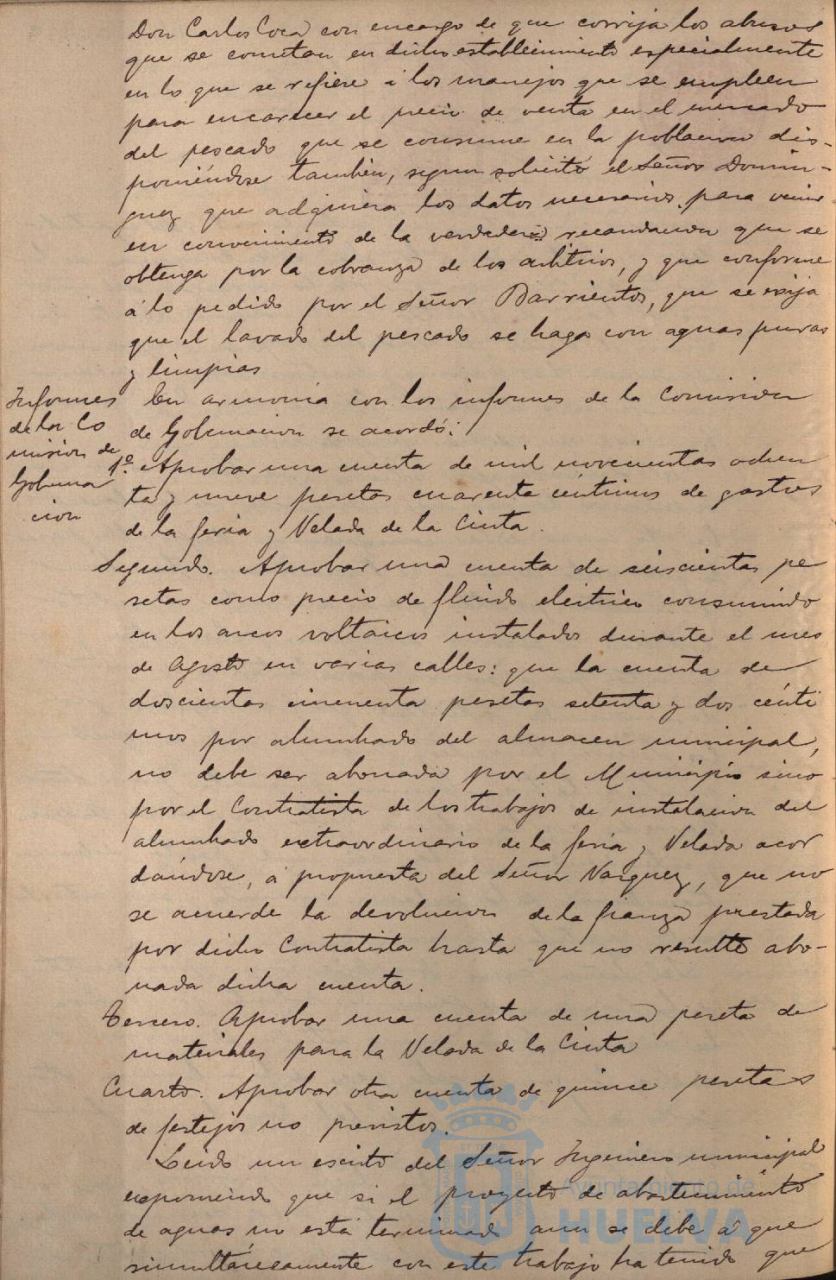 Don Carlos Coca con encargo de que corrija los abusos
que se cometan en dicho establecimiento especialmente
en lo que se refiere á los manejos que se empleen
para encarecer el precio de venta en el mercado
del pescado que se consume en la poblacion dis-
poniéndose tambien, segun solicitó el Señor Domin-
guez que adquiera los datos necesarios para venir
en conocimiento de la verdadera recaudacion que se
obtenga por la cobranza de los arbitrios, y que conforme
á lo pedido por el Señor Barrientos, que se exija
que el lavado del pescado se haga con aguas puras
y limpias
Informes
de la Co
mision de
Goberna
cion
En armonia con los informes de la Comision
de Gobernacion se acordó:
1º. Aprobar una cuenta de mil novecientas ochen
ta y nueve pesetas cuarenta céntimos de gastos
de la feria y Velada de la Cinta.
Segundo. Aprobar una cuenta de seiscientas pe
setas como precio de fluido eléctrico consumido
en los arcos voltaicos instalados durante el mes
de Agosto en varias calles: que la cuenta de
doscientas cincuenta pesetas setenta y dos cénti
mos por alumbrado del almacen municipal,
no debe ser abonada por el Municipio sino
por el Contratista de los trabajos de instalacion del
alumbrado extraordinario de la feria y Velada acor
dándose, á propuesta del Señor Vazquez, que no
se acuerde la devolucion de la fianza prestada
por dicho Contratista hasta que no resulte abo-
nada dicha cuenta.
Tercero. Aprobar una cuenta de una peseta de
materiales para la Velada de la Cinta
Cuarto. Aprobar otra cuenta de quince pesetas
de festejos no previstos.
Leido un escrito del Señor Ingeniero municipal
exponiendo que si el proyecto de abastecimiento
de aguas no está terminado aun se debe á que
simultáneamente con este trabajo ha tenido que
Ayuntamiento de
HUELVA